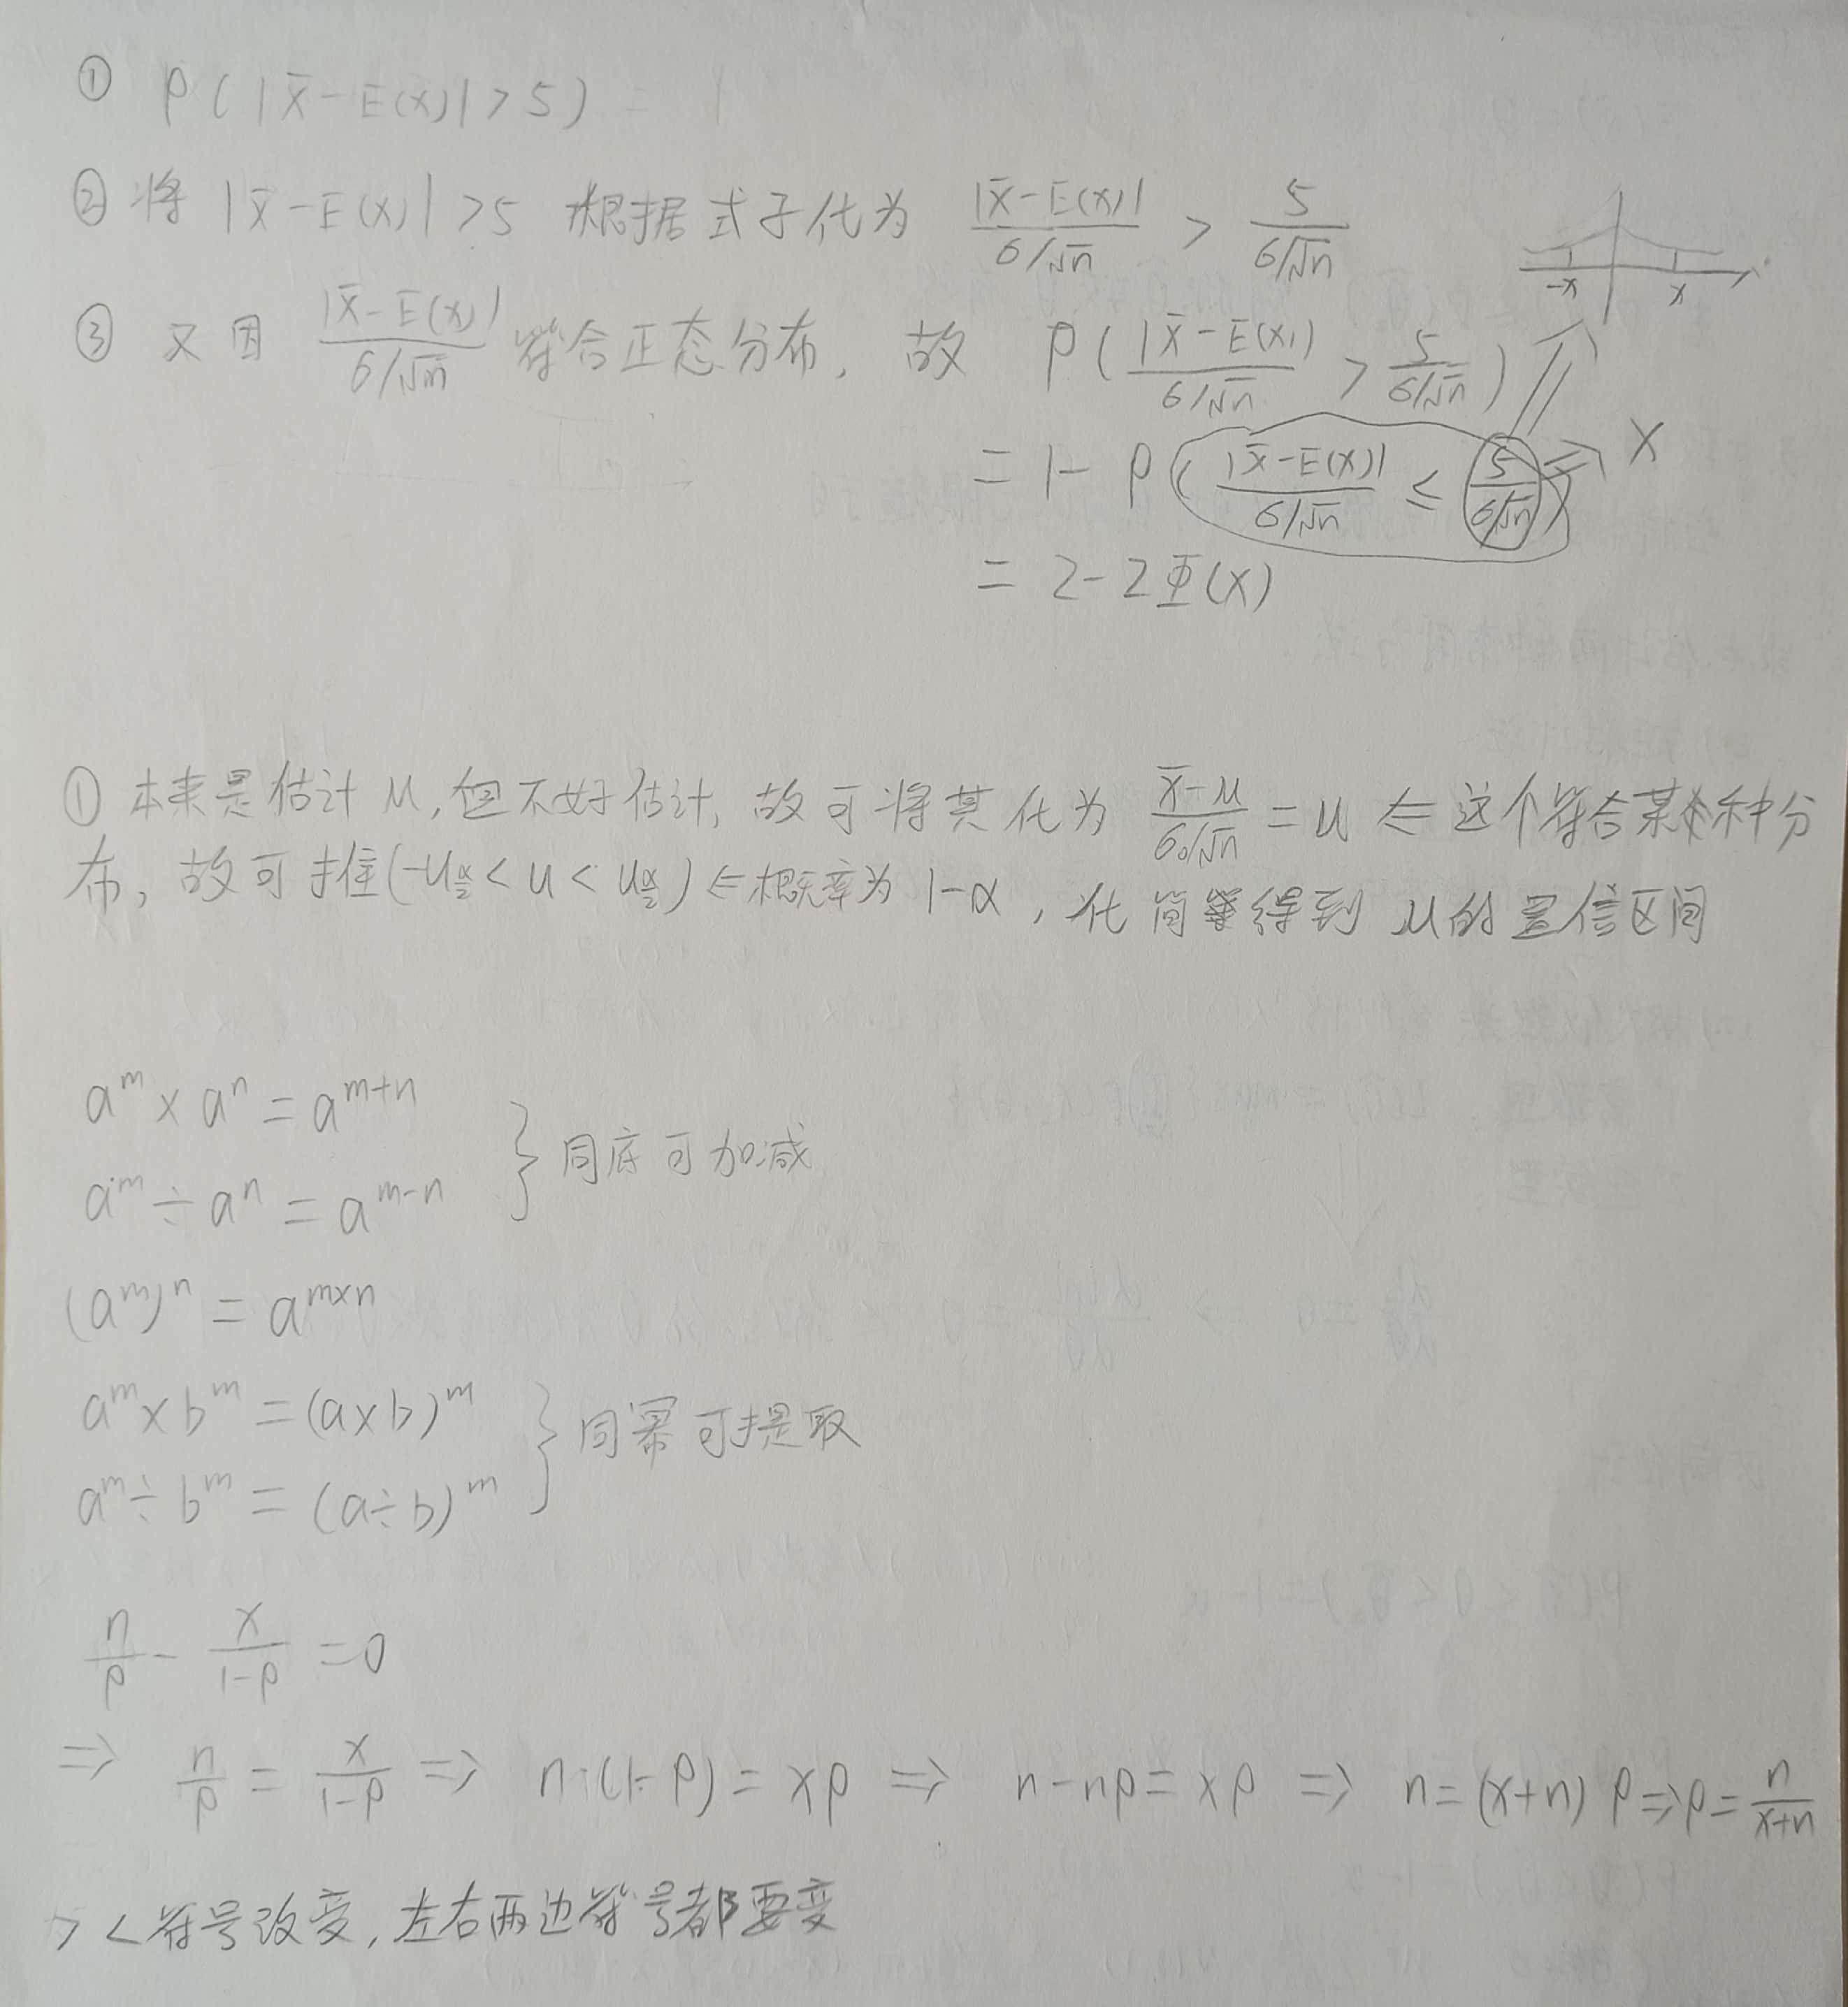 ① P(|x̄-E(x)|>5) = 1
② 将 |x̄-E(x)|>5 根据式子化为 |x̄-E(x)|/(σ/√n) > 5/(σ/√n)
-x x
③ 又因 |x̄-E(x)|/(σ/√n) 符合正态分布, 故 P(|x̄-E(x)|/(σ/√n) > 5/(σ/√n))
= 1- P(|x̄-E(x)|/(σ/√n) ≤ 5/(σ/√n)) ⇒ x
= 2-2Φ(x)
① 本来是估计μ,但不好估计,故可将其化为 (x̄-μ)/(σ₀/√n) = u ⇐ 这个符合某种分
布,故可推(-u_{α/2} < u < u_{α/2}) ⇐ 概率为 1-α, 化简得到 μ的置信区间
a^m × a^n = a^{m+n}
} 同底可加减
a^m ÷ a^n = a^{m-n}
(a^m)^n = a^{m×n}
a^m × b^m = (a×b)^m
} 同幂可提取
a^m ÷ b^m = (a÷b)^m
n/p - x/(1-p) = 0
⇒ n/p = x/(1-p) ⇒ n·(1-p) = xp ⇒ n-np = xp ⇒ n = (x+n) p ⇒ p = n/(x+n)
> < 符号改变, 左右两边符号都要变